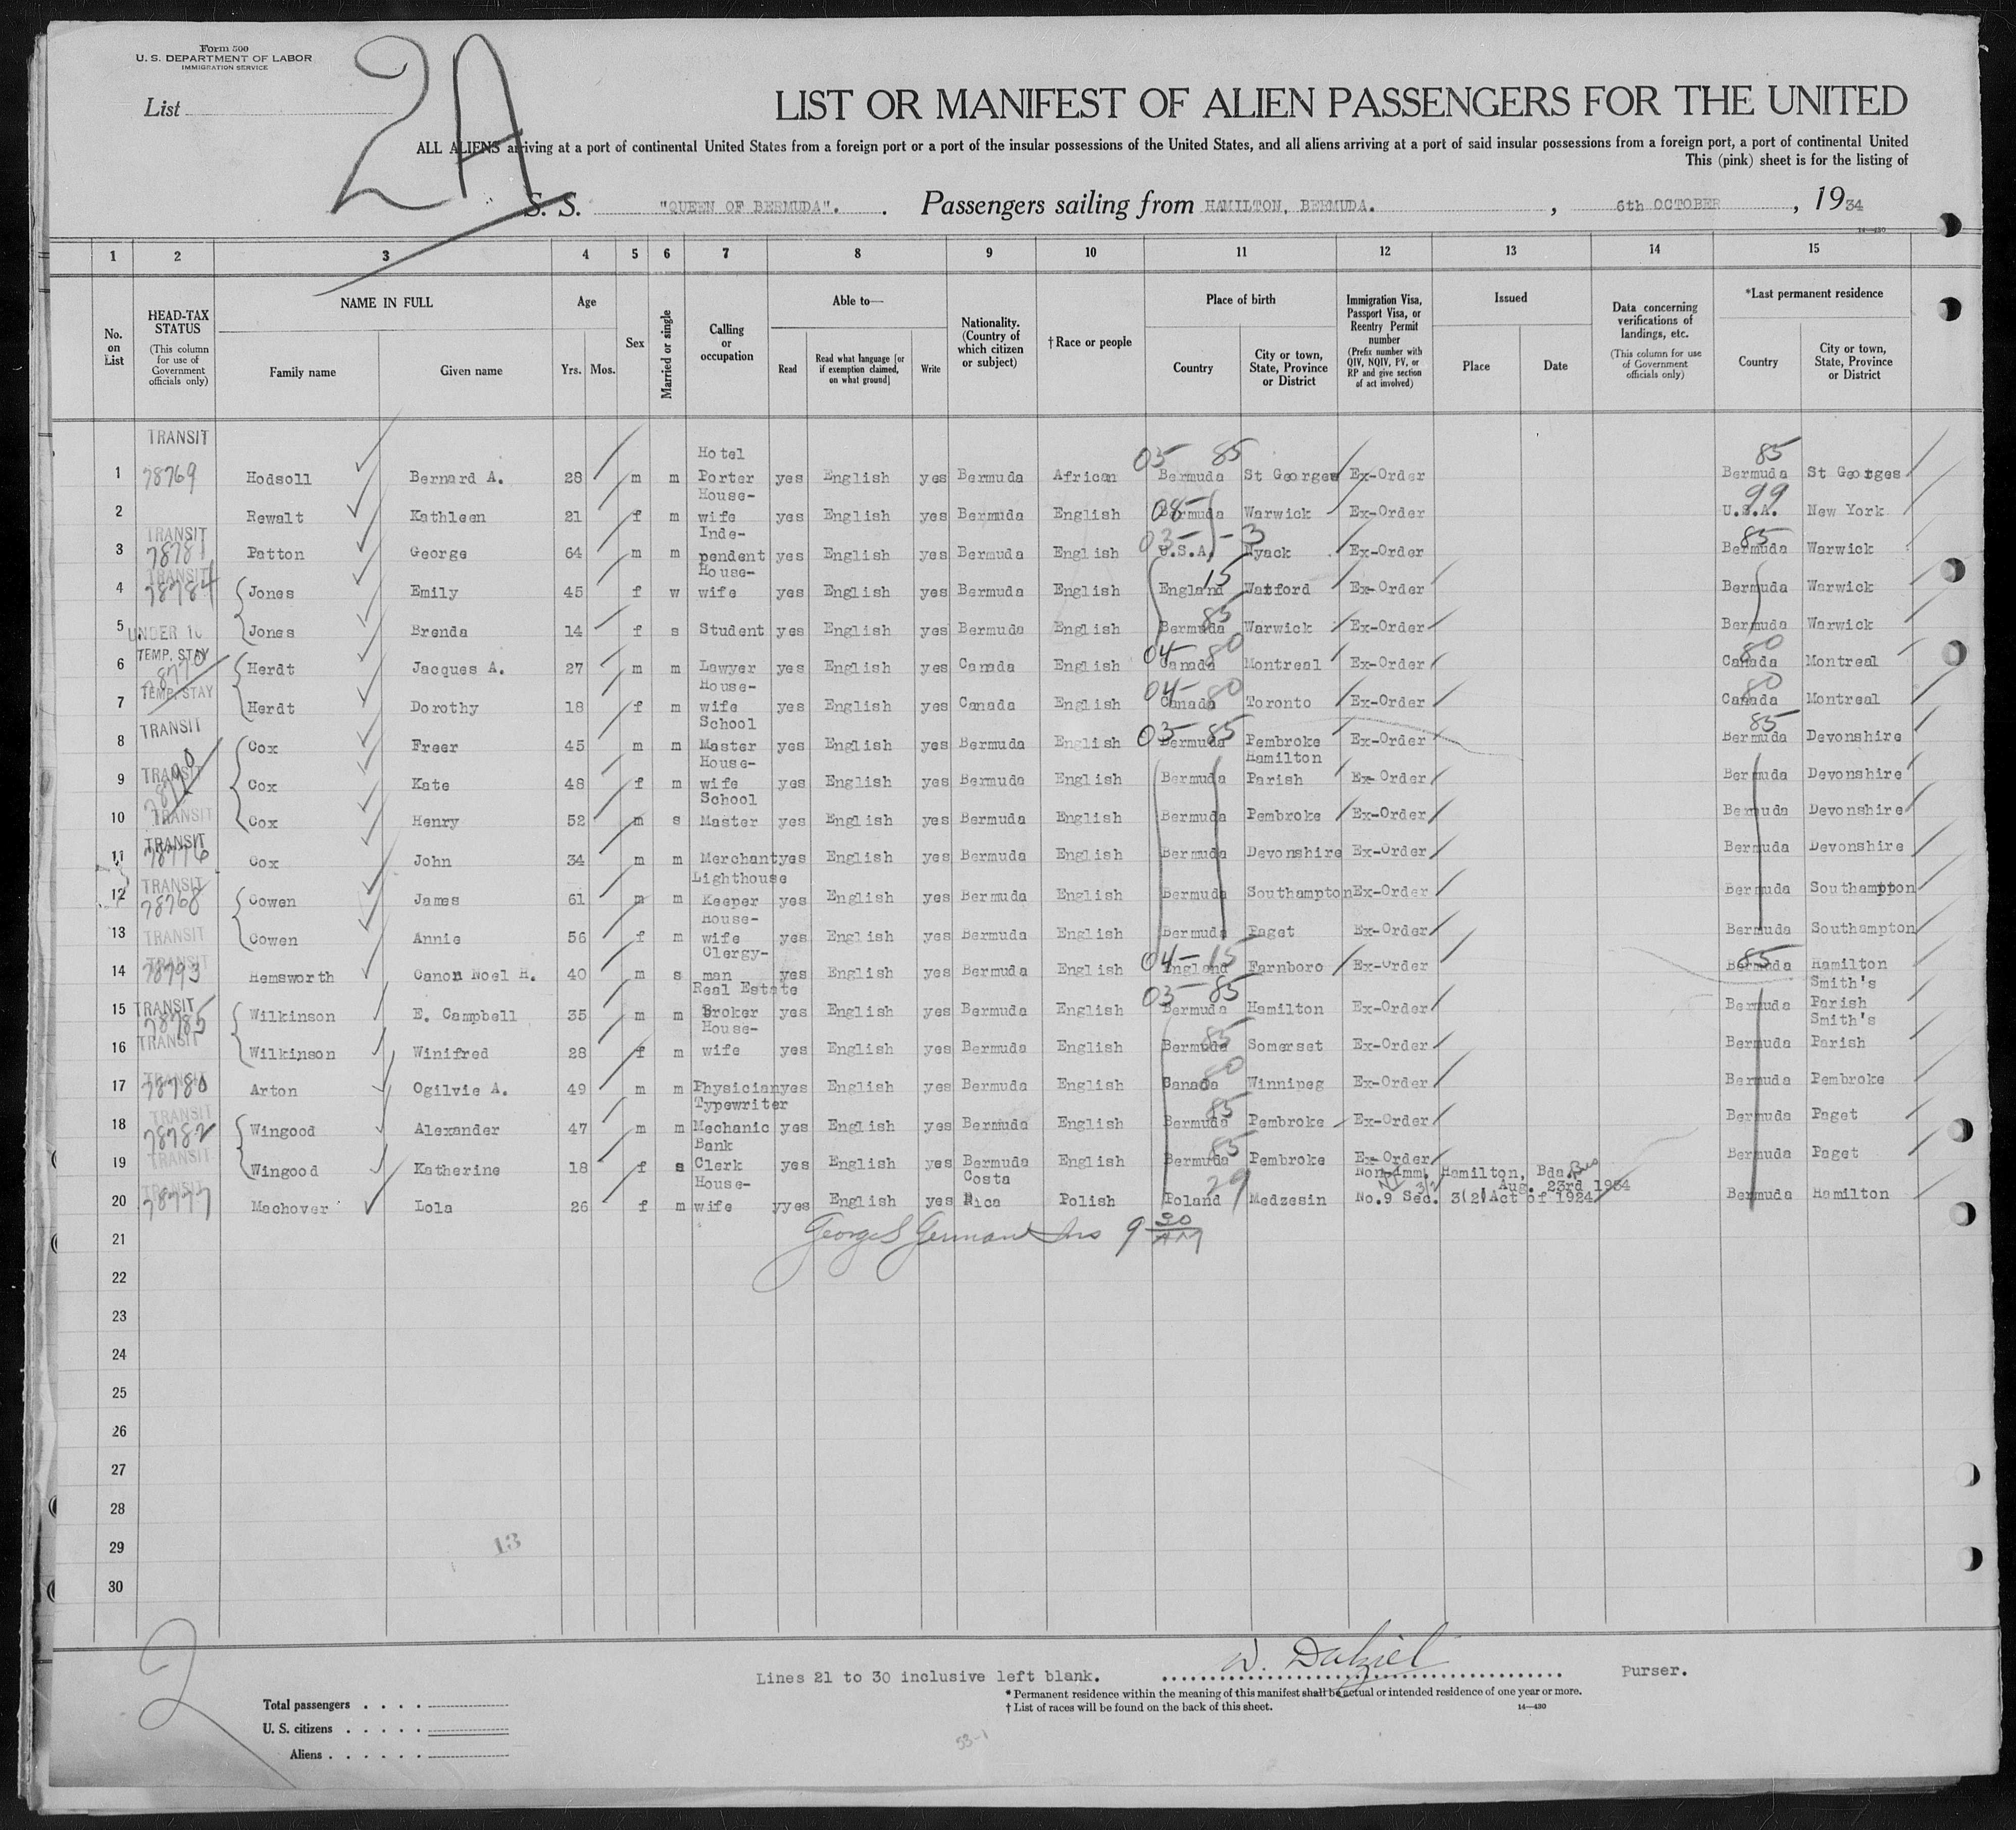 Form 500
U. S. DEPARTMENT OF LABOR
IMMIGRATION SERVICE
List
2A
LIST OR MANIFEST OF ALIEN PASSENGERS FOR THE UNITED
ALL ALIENS arriving at a port of continental United States from a foreign port or a port of the insular possessions of the United States, and all aliens arriving at a port of said insular possessions from a foreign port, a port of continental United
This (pink) sheet is for the listing of
S. S. "QUEEN OF BERMUDA". Passengers sailing from HAMILTON, BERMUDA. , 6th OCTOBER , 1934
14-430
1 2 3 4 5 6 7 8 9 10 11 12 13 14 15
No. on List
HEAD-TAX STATUS (This column for use of Government officials only)
NAME IN FULL
Family name
Given name
Age
Yrs. Mos.
Sex
Married or single
Calling or occupation
Able to—
Read
Read what language [or if exemption claimed, on what ground]
Write
Nationality. (Country of which citizen or subject)
†Race or people
Place of birth
Country
City or town, State, Province or District
Immigration Visa, Passport Visa, or Reentry Permit number (Prefix number with QIV, NQIV, PV, or RP and give section of act involved)
Issued
Place
Date
Data concerning verifications of landings, etc. (This column for use of Government officials only)
*Last permanent residence
Country
City or town, State, Province or District
1 TRANSIT 78769 Hodsoll Bernard A. 28 m m Hotel Porter yes English yes Bermuda African 03 85 Bermuda St Georges Ex-Order 85 Bermuda St Georges
2 Rewalt Kathleen 21 f m House-wife yes English yes Bermuda English 08 Bermuda Warwick Ex-Order 99 U.S.A. New York
3 TRANSIT 78781 Patton George 64 m m Inde-pendent yes English yes Bermuda English 03 - 3 U.S.A. Nyack Ex-Order 85 Bermuda Warwick
4 TRANSIT 78784 Jones Emily 45 f w House-wife yes English yes Bermuda English 15 England Watford Ex-Order Bermuda Warwick
5 UNDER 16 Jones Brenda 14 f s Student yes English yes Bermuda English 85 Bermuda Warwick Ex-Order Bermuda Warwick
6 TEMP. STAY Herdt Jacques A. 27 m m Lawyer yes English yes Canada English 04 80 Canada Montreal Ex-Order 80 Canada Montreal
7 TEMP. STAY Herdt Dorothy 18 f m House-wife yes English yes Canada English 04 80 Canada Toronto Ex-Order 80 Canada Montreal
8 TRANSIT Cox Freer 45 m m School Master yes English yes Bermuda English 03 85 Bermuda Pembroke Ex-Order 85 Bermuda Devonshire
9 TRANSIT Cox Kate 48 f m House-wife yes English yes Bermuda English Bermuda Hamilton Parish Ex-Order Bermuda Devonshire
10 TRANSIT Cox Henry 52 m s School Master yes English yes Bermuda English Bermuda Pembroke Ex-Order Bermuda Devonshire
11 TRANSIT 78776 Cox John 34 m m Merchant yes English yes Bermuda English Bermuda Devonshire Ex-Order Bermuda Devonshire
12 TRANSIT 78768 Cowen James 61 m m Lighthouse Keeper yes English yes Bermuda English Bermuda Southampton Ex-Order Bermuda Southampton
13 TRANSIT Cowen Annie 56 f m House-wife yes English yes Bermuda English Bermuda Paget Ex-Order Bermuda Southampton
14 TRANSIT 78793 Hemsworth Canon Noel H. 40 m s Clergy-man yes English yes Bermuda English 04-15 England Farnboro Ex-Order 85 Bermuda Hamilton
15 TRANSIT 78785 Wilkinson E. Campbell 35 m m Real Estate Broker yes English yes Bermuda English 03 85 Bermuda Hamilton Ex-Order Bermuda Smith's Parish
16 TRANSIT Wilkinson Winifred 28 f m House-wife yes English yes Bermuda English 85 Bermuda Somerset Ex-Order Bermuda Smith's Parish
17 TRANSIT 78780 Arton Ogilvie A. 49 m m Physician yes English yes Bermuda English 80 Canada Winnipeg Ex-Order Bermuda Pembroke
18 TRANSIT 78782 Wingood Alexander 47 m m Typewriter Mechanic yes English yes Bermuda English 85 Bermuda Pembroke Ex-Order Bermuda Paget
19 TRANSIT Wingood Katherine 18 f s Bank Clerk yes English yes Bermuda English 85 Bermuda Pembroke Ex-Order Bermuda Paget
20 TRANSIT 78777 Machover Lola 26 f m House-wife yyes English yes Costa Rica Polish 29 Poland Medzesin Non Imm. No.9 Sec. 3(2)Act of 1924 Hamilton, Bda. Aug. 23rd 1934 Bermuda Hamilton
21 George S German Ins 9 30 AM
22
23
24
25
26
27
28
29
30
13
2
Lines 21 to 30 inclusive left blank. W. Dalziel Purser.
* Permanent residence within the meaning of this manifest shall be actual or intended residence of one year or more.
† List of races will be found on the back of this sheet. 14—430
Total passengers
U. S. citizens
Aliens
53-1